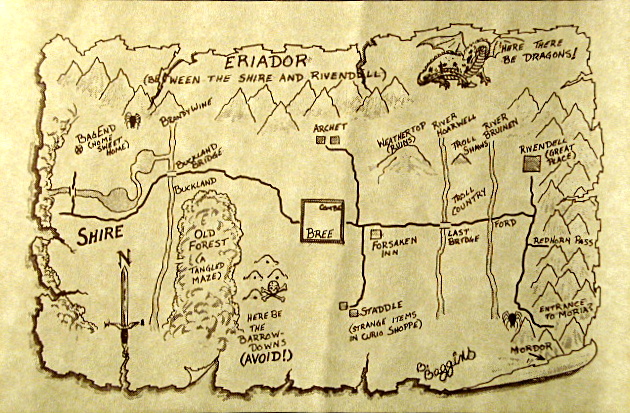 ERIADOR
(BETWEEN THE SHIRE AND RIVENDELL)
HERE THERE
BE DRAGONS!
BAGEND
(HOME
SWEET
HOME)
BRANDYWINE
BUCKLAND
BRIDGE
BUCKLAND
ARCHET
WEATHERTOP
(RUINS)
RIVER
HOARWELL
TROLL
SHAWS
RIVER
BRUINEN
RIVENDELL
(GREAT
PLACE)
TROLL
COUNTRY
SHIRE
N
OLD
FOREST
(A
TANGLED
MAZE)
BREE
FORSAKEN
INN
LAST
BRIDGE
FORD
REDHORN PASS
HERE BE
THE
BARROW-
DOWNS
(AVOID!)
STADDLE
(STRANGE ITEMS
IN CURIO SHOPPE)
ENTRANCE
TO MORIA?
MORDOR
B. Baggins